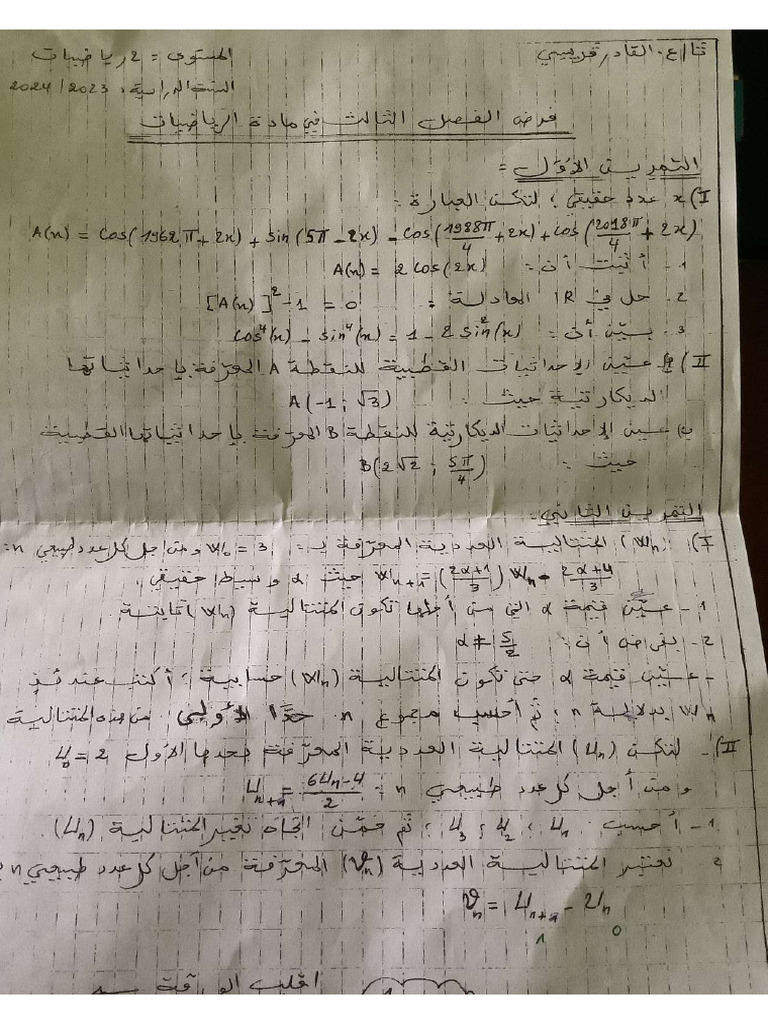 ثا/ع. القادر قريسي
المستوى = 2 رياضيات
السنة الدراسية: 2023/2024
فرض الفصل الثالث في مادة الرياضيات
التمرين الأوّل =
I) x عدد حقيقي؛ لتكن العبارة:
A(x) = cos(1962π + 2x) + sin(5π - 2x) - cos(1988π/4 + 2x) + cos(2018π/4 + 2x)
1 - أثبت أن: A(x) = 2cos(2x)
2. حل في IR المعادلة: [A(x)]² - 1 = 0
3. بيّن أن: cos⁴(x) - sin⁴(x) = 1 - 2sin²(x)
II) عيّن الإحداثيات القطبية للنقطة A المعرّفة بإحداثياتها
الديكارتية حيث: A(-1; √3)
ب) عين الإحداثيات الديكارتية للنقطة B المعرفة بإحداثياتها القطبية
حيث: B(2√2 ; 5π/4)
التمرين الثاني:
I) (Wn) المتتالية العددية المعرّفة بـ: W0 = 3 و من أجل كل عدد طبيعي n:
Wn+1 = (2α+1/3)Wn - 2α+4/3 حيث α وسيط حقيقي.
1 - عيّن قيمة α التي من أجلها تكون المتتالية (Wn) ثابتة.
2 - بفرض أن: α ≠ 5/2
- عيّن قيمة α حتى تكون المتتالية (Wn) حسابية؛ أكتب عندئذ
Wn بدلالة n؛ ثم أحسب مجموع n حدًا الأولى من هذه المتتالية
II) - لتكن (Un) المتتالية العددية المعرّفة بحدها الأول U0 = 2
و من أجل كل عدد طبيعي n: Un+1 = 6Un-4/2
1 - أحسب U1؛ U2؛ U3؛ ثم خمّن اتجاه تغير المتتالية (Un)
2 نعتبر المتتالية العددية (Vn) المعرّفة من أجل كل عدد طبيعي n
Vn = Un+1 - Un
1 0
اقلب الورقة